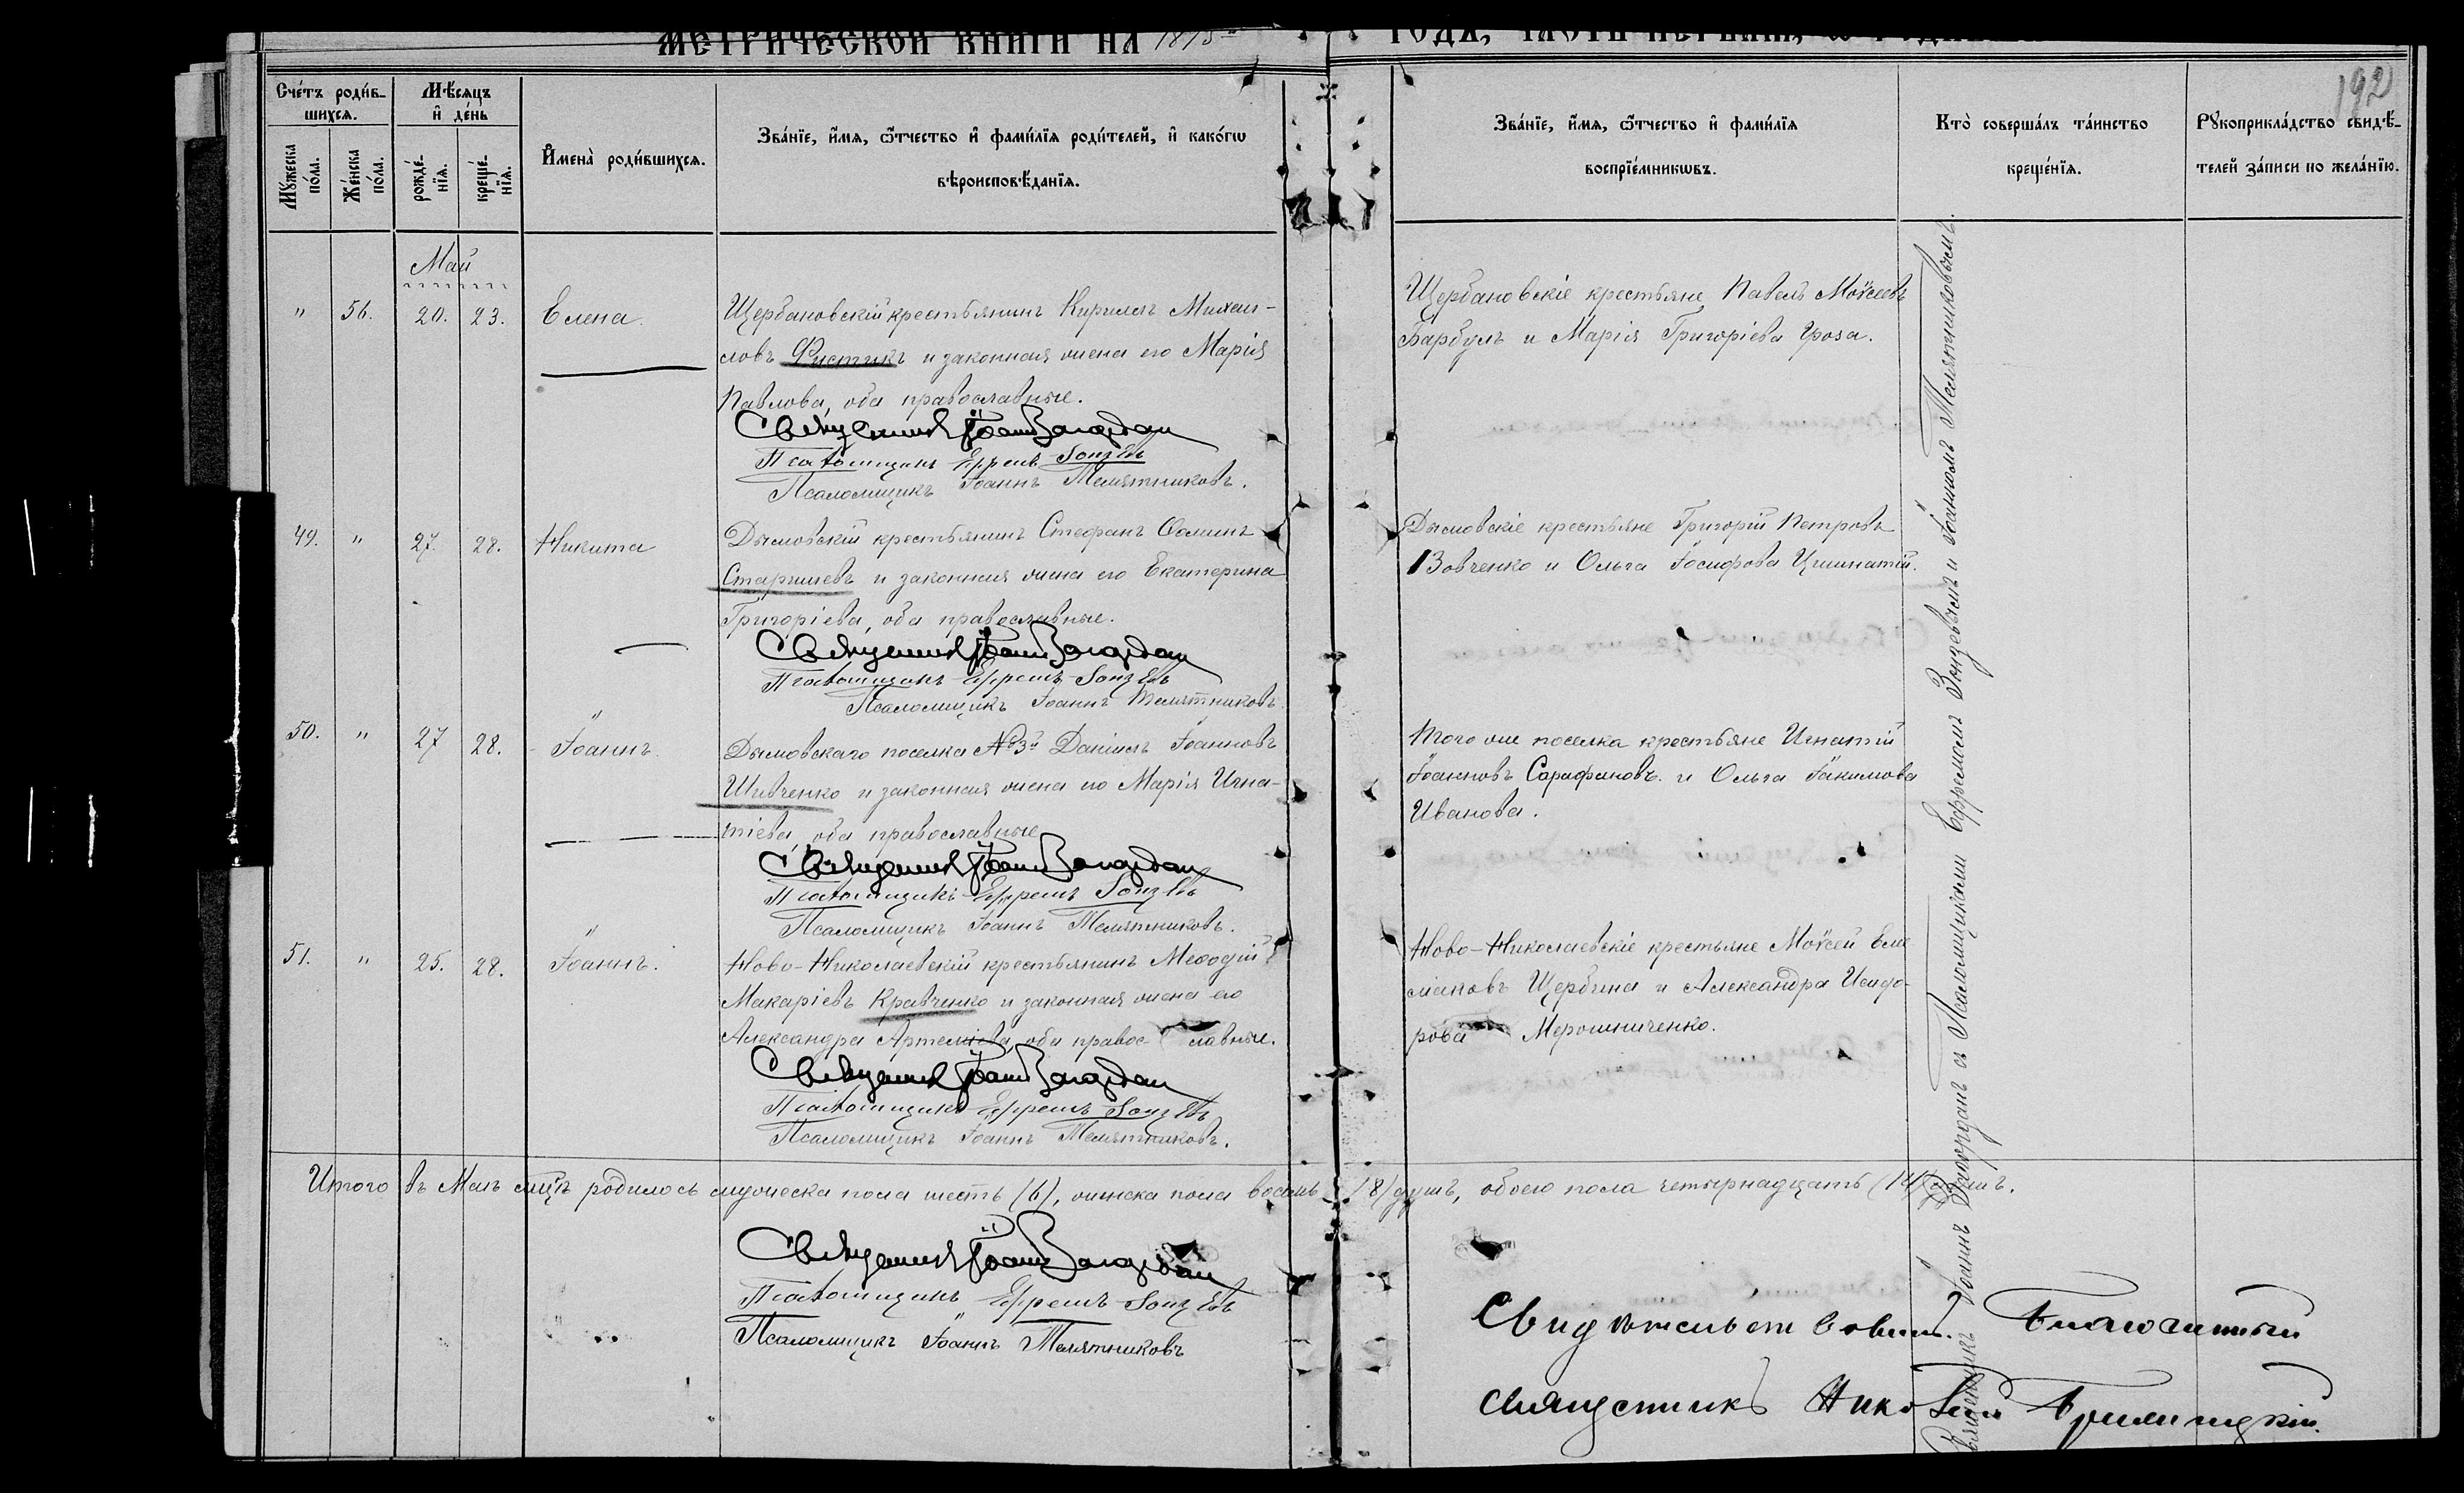 МЕТРИЧЕСКОЙ КНИГИ НА 1875 ГОДЪ, ЧАСТИ ПЕРВАЯ,
192
Сче́тъ роди́вшихся.
Мѣ́сяцъ и҆ де́нь
Му́жеска по́ла.
Же́нска по́ла.
рожде́нїя.
креще́нїя.
И҆мена̀ роди́вшихся.
Зва́нїе, и҆́мя, ѻ҆́тчество и҆ фами́лїя роди́телей, и҆ како́гѡ
вѣроисповѣ́данїя.
Зва́нїе, и҆́мя, ѻ҆́тчество и҆ фами́лїя
воспрїе́мникѡвъ.
Кто̀ соверша́лъ та́инство
креще́нїя.
Рукоприкла́дство свидѣ́-
телей за́писи по жела́нїю.
Май
" 56. 20. 23. Елена.
Щербановскій крестьянинъ Кириллъ Михаи-
ловъ Фистикъ и законная жена его Марія
Павлова, оба православные.
Священникъ Іоаннъ
Псаломщикъ Ефремъ
Псаломщикъ Іоаннъ Телятниковъ.
Щербановскіе крестьяне Павелъ Моѵсеевъ
Барбулъ и Марія Григоріева Гроза.
49. " 27. 28. Никита
Дымовскій крестьянинъ Стефанъ Ѳоминъ
Старишевъ и законная жена его Екатерина
Григоріева, оба православные.
Священникъ Іоаннъ
Псаломщикъ Ефремъ
Псаломщикъ Іоаннъ Телятниковъ
Дымовскіе крестьяне Григорій Петровъ
Вовченко и Ольга Іосифова
50. " 27 28. Іоаннъ.
Дымовскаго поселка №3й Даніилъ Іоанновъ
Шевченко и законная жена его Марія Игна-
тіева, оба православные
Священникъ Іоаннъ
Псаломщикъ Ефремъ
Псаломщикъ Іоаннъ Телятниковъ.
Того же поселка крестьяне Игнатій
Іоанновъ Сарафановъ. и Ольга Іакимова
Иванова.
51. " 25. 28. Іоаннъ.
Ново-Николаевскій крестьянинъ Меѳодій
Макаріевъ Кравченко и законная жена его
Александра Артеміева, оба правос- лавные.
Священникъ Іоаннъ
Псаломщикъ Ефремъ
Псаломщикъ Іоаннъ Телятниковъ.
Ново-Николаевскіе крестьяне Моѵсей Еме
ліановъ Щербина и Александра Исидо-
рова Мерошниченко.
Священникъ Іоаннъ съ Псаломщиками Ефремомъ и Іоанномъ Телятниковымъ.
Итого въ Маѣ мцѣ родилось мужеска пола шесть (6), женска пола восемь (8) душъ, обоего пола четырнадцать (14) душъ.
Священникъ Іоаннъ
Псаломщикъ Ефремъ
Псаломщикъ Іоаннъ Телятниковъ
Свидѣтельствовалъ. Благочинный
священникъ Николай